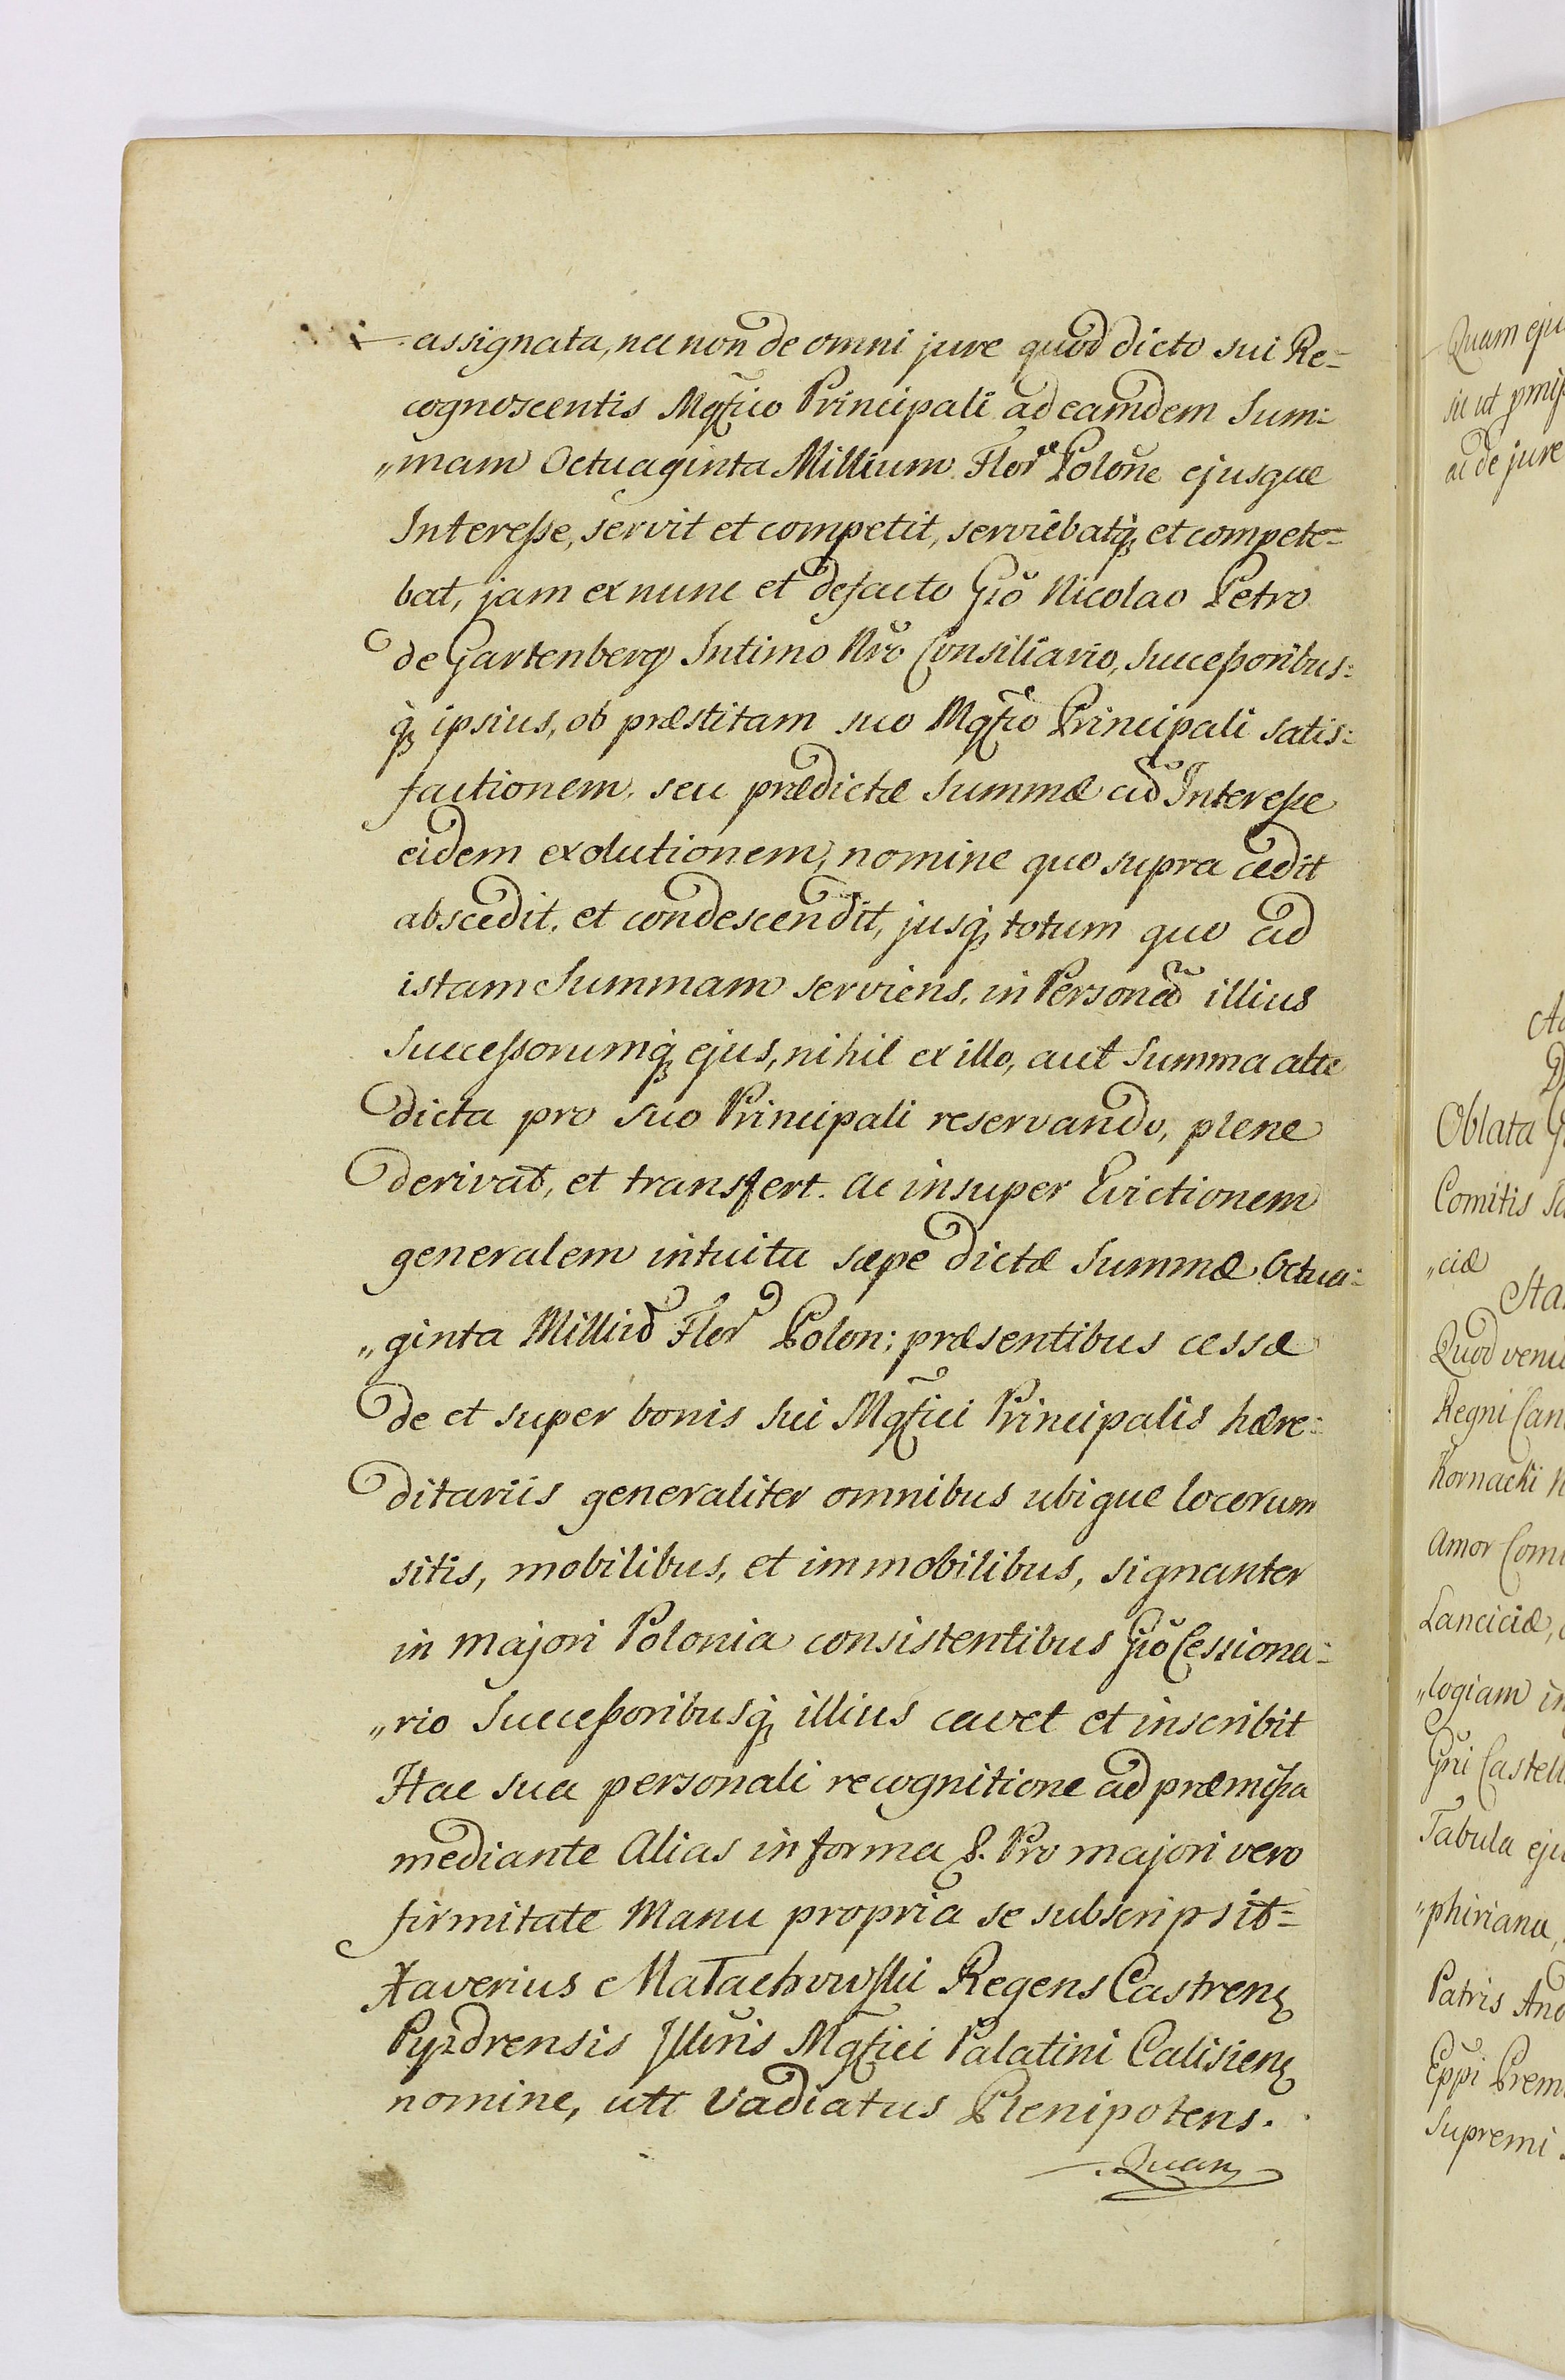 assignata, nec non de omni jure quod dicto sui Re=
cognoscentis Mgfico Principali ad eamdem Sum:
„mam Octuaginta Millium Flor Polone ejusque
Interesse, servit et competit, serviebatq; et compete=
bat, jam ex nunc et defacto Gso Nicolao Petro
de Gartenberg Intimo Nro Consiliario, Successoribus:
q; ipsius, ob præstitam suo Mgfco Principali satis:
factionem, seu prædictæ Summæ ad Interesse
eidem exolutionem, nomine quo supra cedit
abscedit, et condescendit, jusq; totum quo ad
istam Summam serviens, in Personam illius
Successorumq; ejus, nihil ex illo, aut Summa atte
dicta pro suo Principali reservando, plene
derivat, et transfert. Ac insuper Evictionem
generalem intuitu sæpe dictæ Summæ Octua:
„ginta Milliu Flor Polon: præsentibus cessæ
de et super bonis sui Mgfici Principalis hære:
ditariis generaliter omnibus ubique locorum
sitis, mobilibus, et immobilibus, signanter
in majori Polonia consistentibus Gso Cessiona:
„rio Successoribusq; illius cavet et inscribit
Hac sua personali recognitione ad præmissa
mediante Alias in forma &. Pro majori vero
firmitate Manu propria se subscripsit=
Xaverius Małachowski Regens Castren
Pyzdrensis Illuris Mgfici Palatini Calisien
nomine, uti Vadiatus Plenipotens.
Quam
Quam eju
sic ut
ac de jure
Oblata
Comitis
„ciæ
Sta
Quod veni
Regni Can
Kornacki
Amor Com
Lanciciæ,
„logiam in
Gni Castel
Tabula eju
„phiriana,
Patris And
Eppi Prem
Supremi